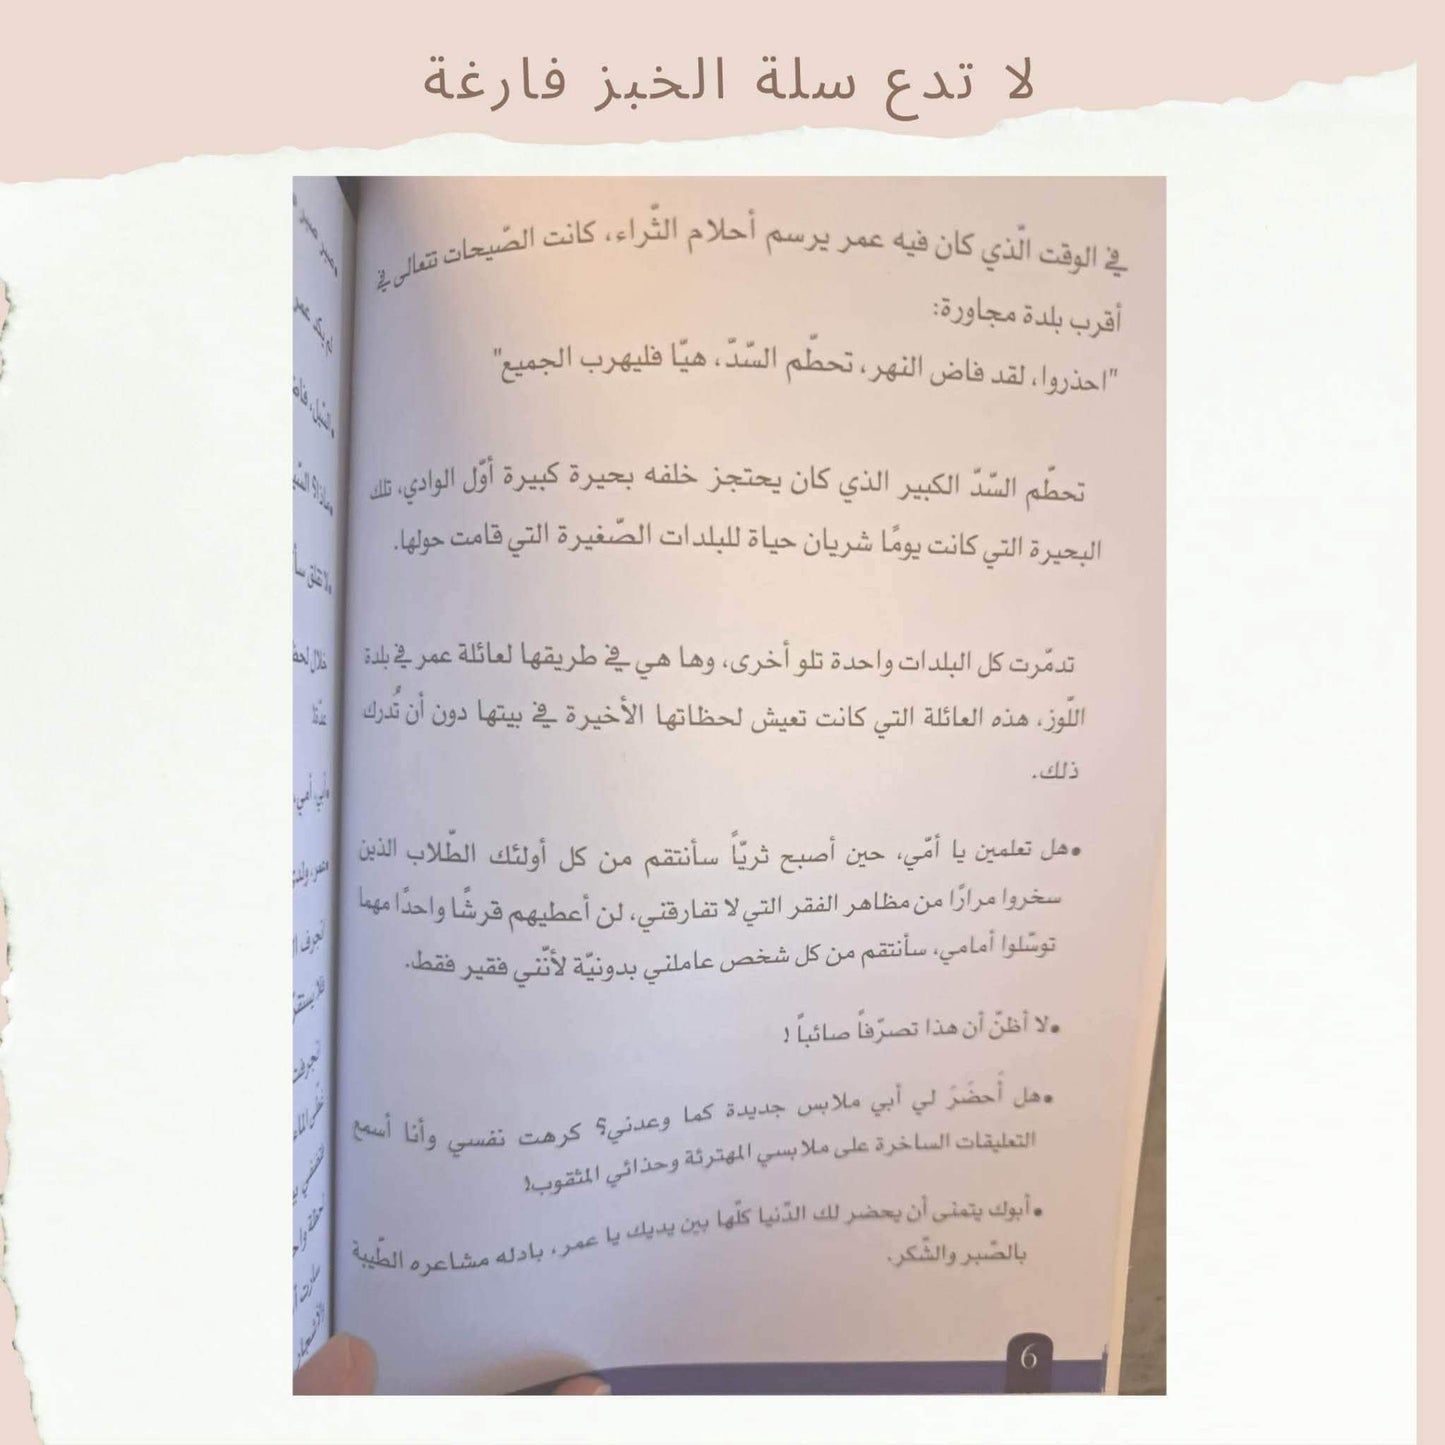 لا تدع سلة الخبز فارغة
في الوقت الّذي كان فيه عمر يرسم أحلام الثّراء، كانت الصّيحات تتعالى في
أقرب بلدة مجاورة:
"احذروا، لقد فاض النهر، تحطّم السّدّ، هيّا فليهرب الجميع"
تحطّم السّدّ الكبير الذي كان يحتجز خلفه بحيرة كبيرة أوّل الوادي، تلك
البحيرة التي كانت يومًا شريان حياة للبلدات الصّغيرة التي قامت حولها.
تدمّرت كل البلدات واحدة تلو أخرى، وها هي في طريقها لعائلة عمر في بلدة
اللّوز، هذه العائلة التي كانت تعيش لحظاتها الأخيرة في بيتها دون أن تُدرك
ذلك.
•هل تعلمين يا أمّي، حين أصبح ثريّاً سأنتقم من كل أولئك الطّلاب الذين
سخروا مرارًا من مظاهر الفقر التي لا تفارقني، لن أعطيهم قرشًا واحدًا مهما
توسّلوا أمامي، سأنتقم من كل شخص عاملني بدونيّة لأنّني فقير فقط.
•لا أظنّ أن هذا تصرّفاً صائباً !
•هل أَحضَرَ لي أبي ملابس جديدة كما وعدني؟ كرهت نفسي وأنا أسمع
التعليقات الساخرة على ملابسي المهترئة وحذائي المثقوب!
•أبوك يتمنى أن يحضر لك الدّنيا كلّها بين يديك يا عمر، بادله مشاعره الطّيبة
بالصّبر والشّكر.
6